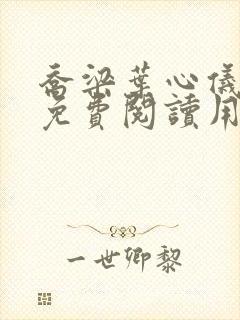 喬梁葉心儀
免費閱讀用
一世卿黎